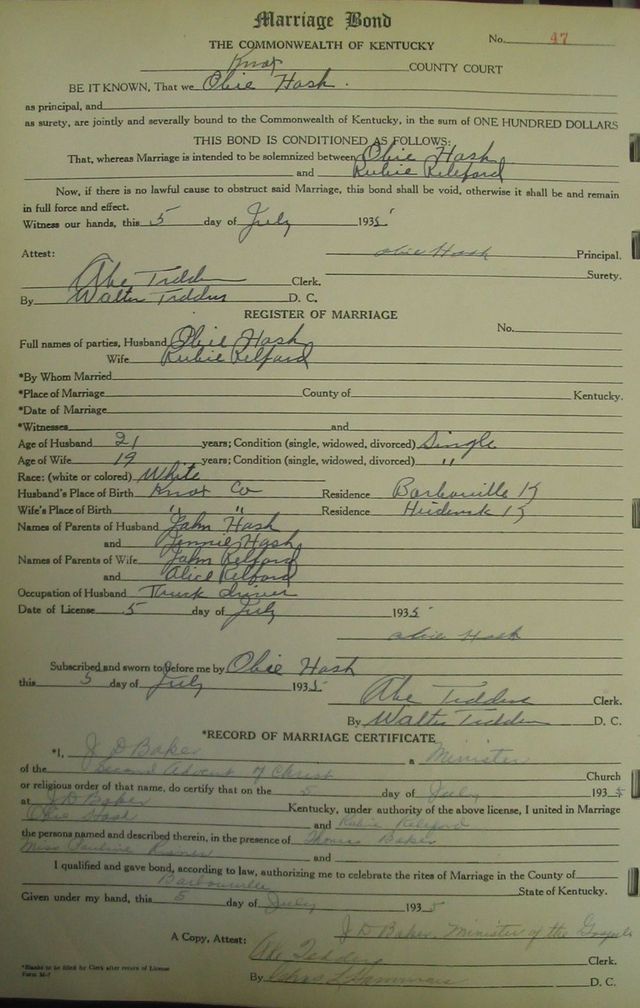 Marriage Bond
No. 47
THE COMMONWEALTH OF KENTUCKY
Knox COUNTY COURT
BE IT KNOWN, That we Obie Hash.
as principal, and
as surety, are jointly and severally bound to the Commonwealth of Kentucky, in the sum of ONE HUNDRED DOLLARS
THIS BOND IS CONDITIONED AS FOLLOWS:
That, whereas Marriage is intended to be solemnized between Obie Hash
and Rubie Releford
Now, if there is no lawful cause to obstruct said Marriage, this bond shall be void, otherwise it shall be and remain
in full force and effect.
Witness our hands, this 5 day of July 1935
Attest: Obie Hash Principal.
Surety.
Abe Clerk.
By Walter D. C.
REGISTER OF MARRIAGE
No.
Full names of parties, Husband Obie Hash
Wife Rubie Relford
*By Whom Married
*Place of Marriage County of Kentucky.
*Date of Marriage
*Witnesses and
Age of Husband 21 years; Condition (single, widowed, divorced) Single
Age of Wife 19 years; Condition (single, widowed, divorced) "
Race: (white or colored) White
Husband's Place of Birth Knox Co Residence Barbourville K
Wife's Place of Birth " " Residence K
Names of Parents of Husband John Hash
and Jennie Hash
Names of Parents of Wife John Relford
and Alice Relford
Occupation of Husband Truck driver
Date of License 5 day of July 1935
Obie Hash
Subscribed and sworn to before me by Obie Hash
this 5 day of July 1935
Abe Clerk.
By Walter D. C.
*RECORD OF MARRIAGE CERTIFICATE
*I, J D Baker a Minister
of the Second Advent of Christ Church
or religious order of that name, do certify that on the 5 day of July 1935
at J D Baker Kentucky, under authority of the above license, I united in Marriage
Obie Hash and Rubie Releford
the persons named and described therein, in the presence of Thomas Baker
Miss Pauline and
I qualified and gave bond, according to law, authorizing me to celebrate the rites of Marriage in the County of
Barbourville State of Kentucky.
Given under my hand, this 5 day of July 1935
J D Baker, Minister of the Gospel
A Copy, Attest: Abe Clerk.
By D. C.
*Blanks to be filled by Clerk after return of License
Form M-7